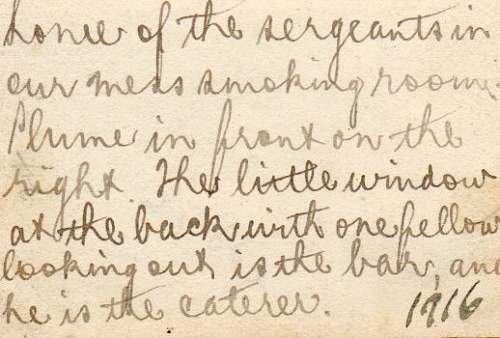 some of the sergeants in
our mess smoking room.
Plume in front on the
right. The little window
at the back with one fellow
looking out is the bar, and
he is the caterer.
1916